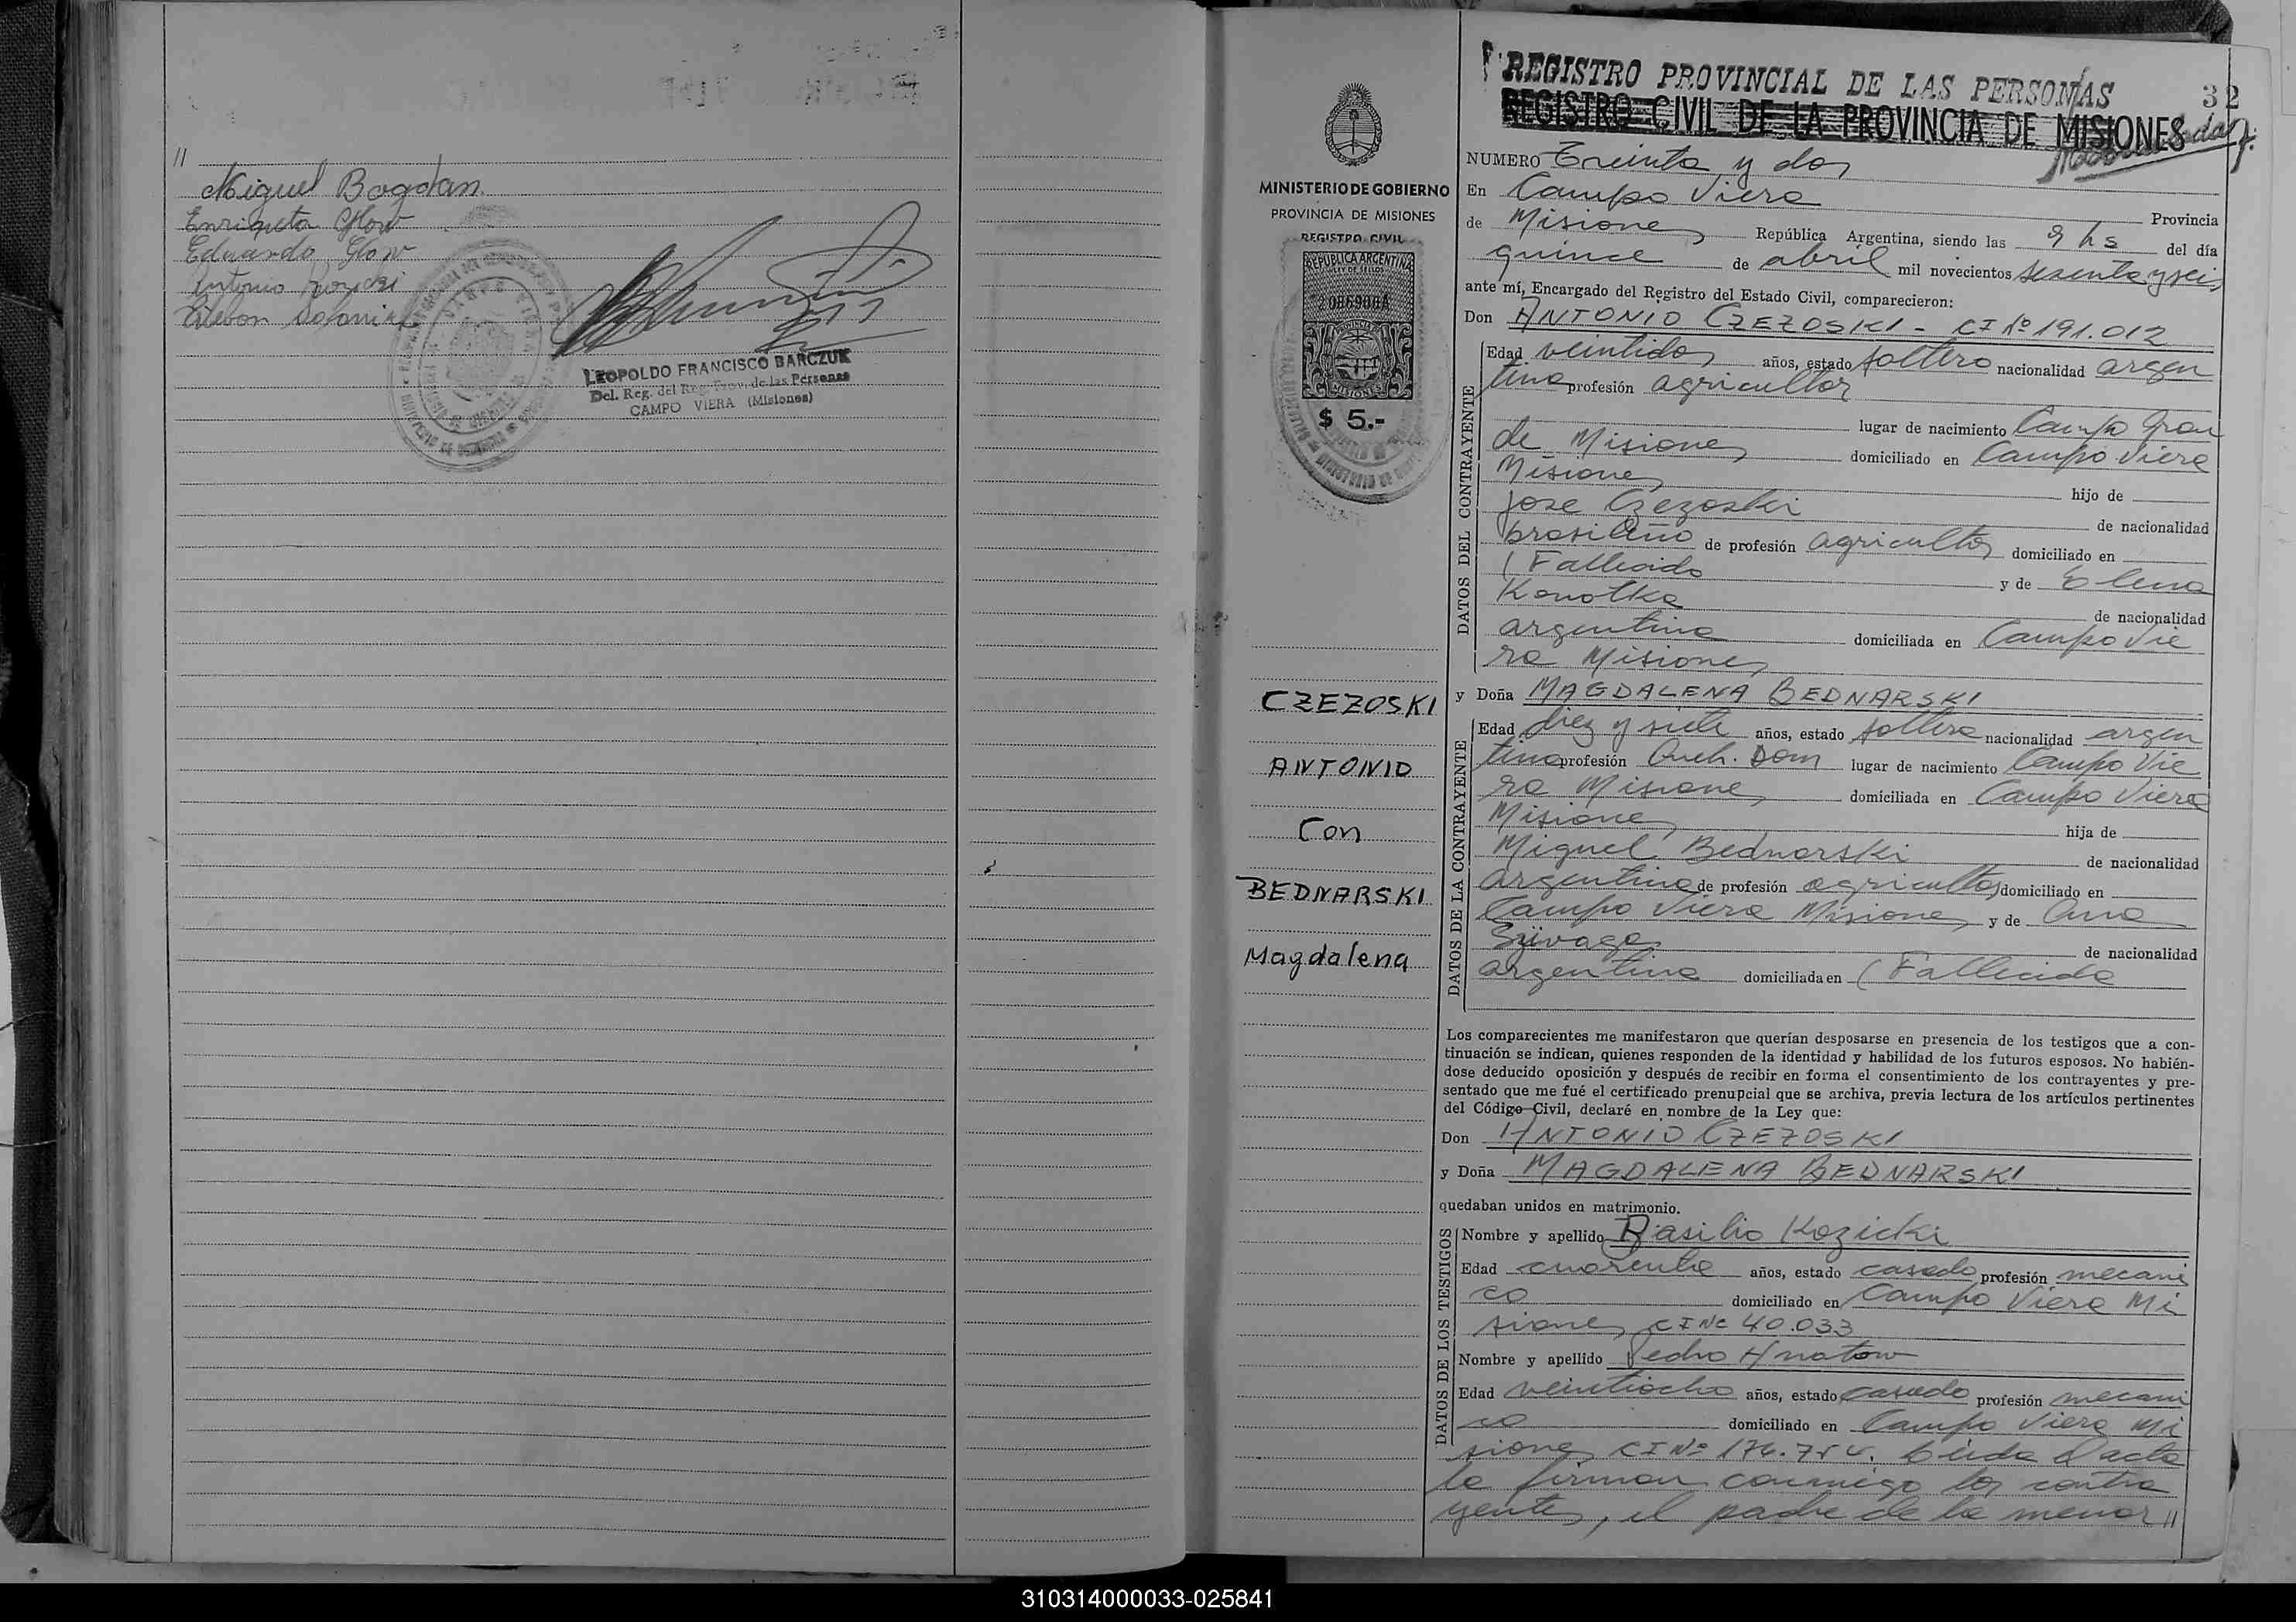 //
Miguel Bogdan
Enriqueta Glow
Eduardo Glow
Antonio
LEOPOLDO FRANCISCO BARCZUK
Del. Reg. del Reg. Prov. de las Personas
CAMPO VIERA (Misiones)
REGISTRO PROVINCIAL DE LAS PERSONAS
32
REGISTRO CIVIL DE LA PROVINCIA DE MISIONES
MINISTERIO DE GOBIERNO
PROVINCIA DE MISIONES
REGISTRO CIVIL
REPUBLICA ARGENTINA
LEY DE SELLOS
PROVINCIA DE
MISIONES
$ 5.-
CZEZOSKI
ANTONIO
Con
BEDNARSKI
Magdalena
NUMERO Treinta y dos
En Campo Viera
Provincia
de Misiones República Argentina, siendo las 9 hs del día
quince de abril mil novecientos sesenta y seis
ante mí, Encargado del Registro del Estado Civil, comparecieron:
Don ANTONIO CZEZOSKI - CI Nº 191.012
DATOS DEL CONTRAYENTE
Edad veintidos años, estado soltero nacionalidad argen
tina profesión agricultor
lugar de nacimiento Campo Gran
de Misiones domiciliado en Campo Viera
Misiones hijo de
Jose Czezoski de nacionalidad
brasileño de profesión agricultor domiciliado en
(Fallecido y de Elena
Konotka de nacionalidad
argentina domiciliada en Campo Vie
ra Misiones
y Doña MAGDALENA BEDNARSKI
DATOS DE LA CONTRAYENTE
Edad diez y siete años, estado soltera nacionalidad argen
tina profesión Queh. Dom lugar de nacimiento Campo Vie
ra Misiones domiciliada en Campo Viera
Misiones hija de
Miguel Bednarski de nacionalidad
argentina de profesión agricultor domiciliado en
Campo Viera Misiones y de Ana
de nacionalidad
argentina domiciliada en (Fallecida
Los comparecientes me manifestaron que querían desposarse en presencia de los testigos que a con-
tinuación se indican, quienes responden de la identidad y habilidad de los futuros esposos. No habién-
dose deducido oposición y después de recibir en forma el consentimiento de los contrayentes y pre-
sentado que me fué el certificado prenupcial que se archiva, previa lectura de los artículos pertinentes
del Código Civil, declaré en nombre de la Ley que:
Don ANTONIO CZEZOSKI
y Doña MAGDALENA BEDNARSKI
quedaban unidos en matrimonio.
DATOS DE LOS TESTIGOS
Nombre y apellido Basilio Kozicki
Edad cuarenta años, estado casado profesión mecani
co domiciliado en Campo Viera Mi
siones CI Nº 40.033
Nombre y apellido Pedro Hnatow
Edad veintiocho años, estado casado profesión mecani
co domiciliado en Campo Viera Mi
siones CI Nº leida el acta
la firman conmigo los contra
yentes, el padre de la menor //
310314000033-025841